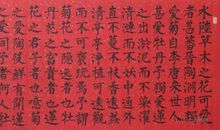 水陸草木之花可
者甚蕃晉陶淵明獨
愛菊自李唐來世
甚愛牡丹予獨愛蓮
之出淤泥而不染
清漣而不妖中通
直不蔓不枝香遠益
清亭亭淨植可遠觀
而不可褻玩焉予謂
菊花之隱逸者也牡
丹花之富貴者也蓮
花之君子者也噫菊
之愛陶後鮮有聞蓮
之愛同予者何人牡